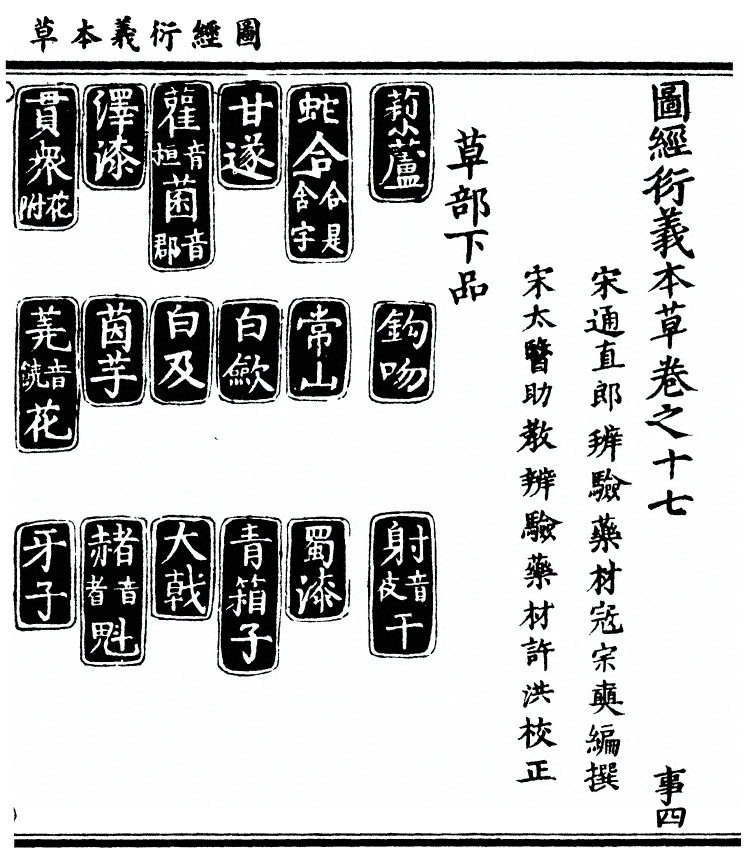 圖經衍義本草
圖經衍義本草卷之十七 事四
宋通直郎辨驗藥材寇宗奭編撰
宋太醫助教辨驗藥材許洪校正
草部下品
藜蘆 鈎吻 射音夜干
蛇合合是含字 常山 蜀漆
甘遂 白歛 青箱子
雚音桓菌音郡 白及 大戟
澤漆 茵芋 赭音者魁
貫衆花附 蕘音饒花 牙子